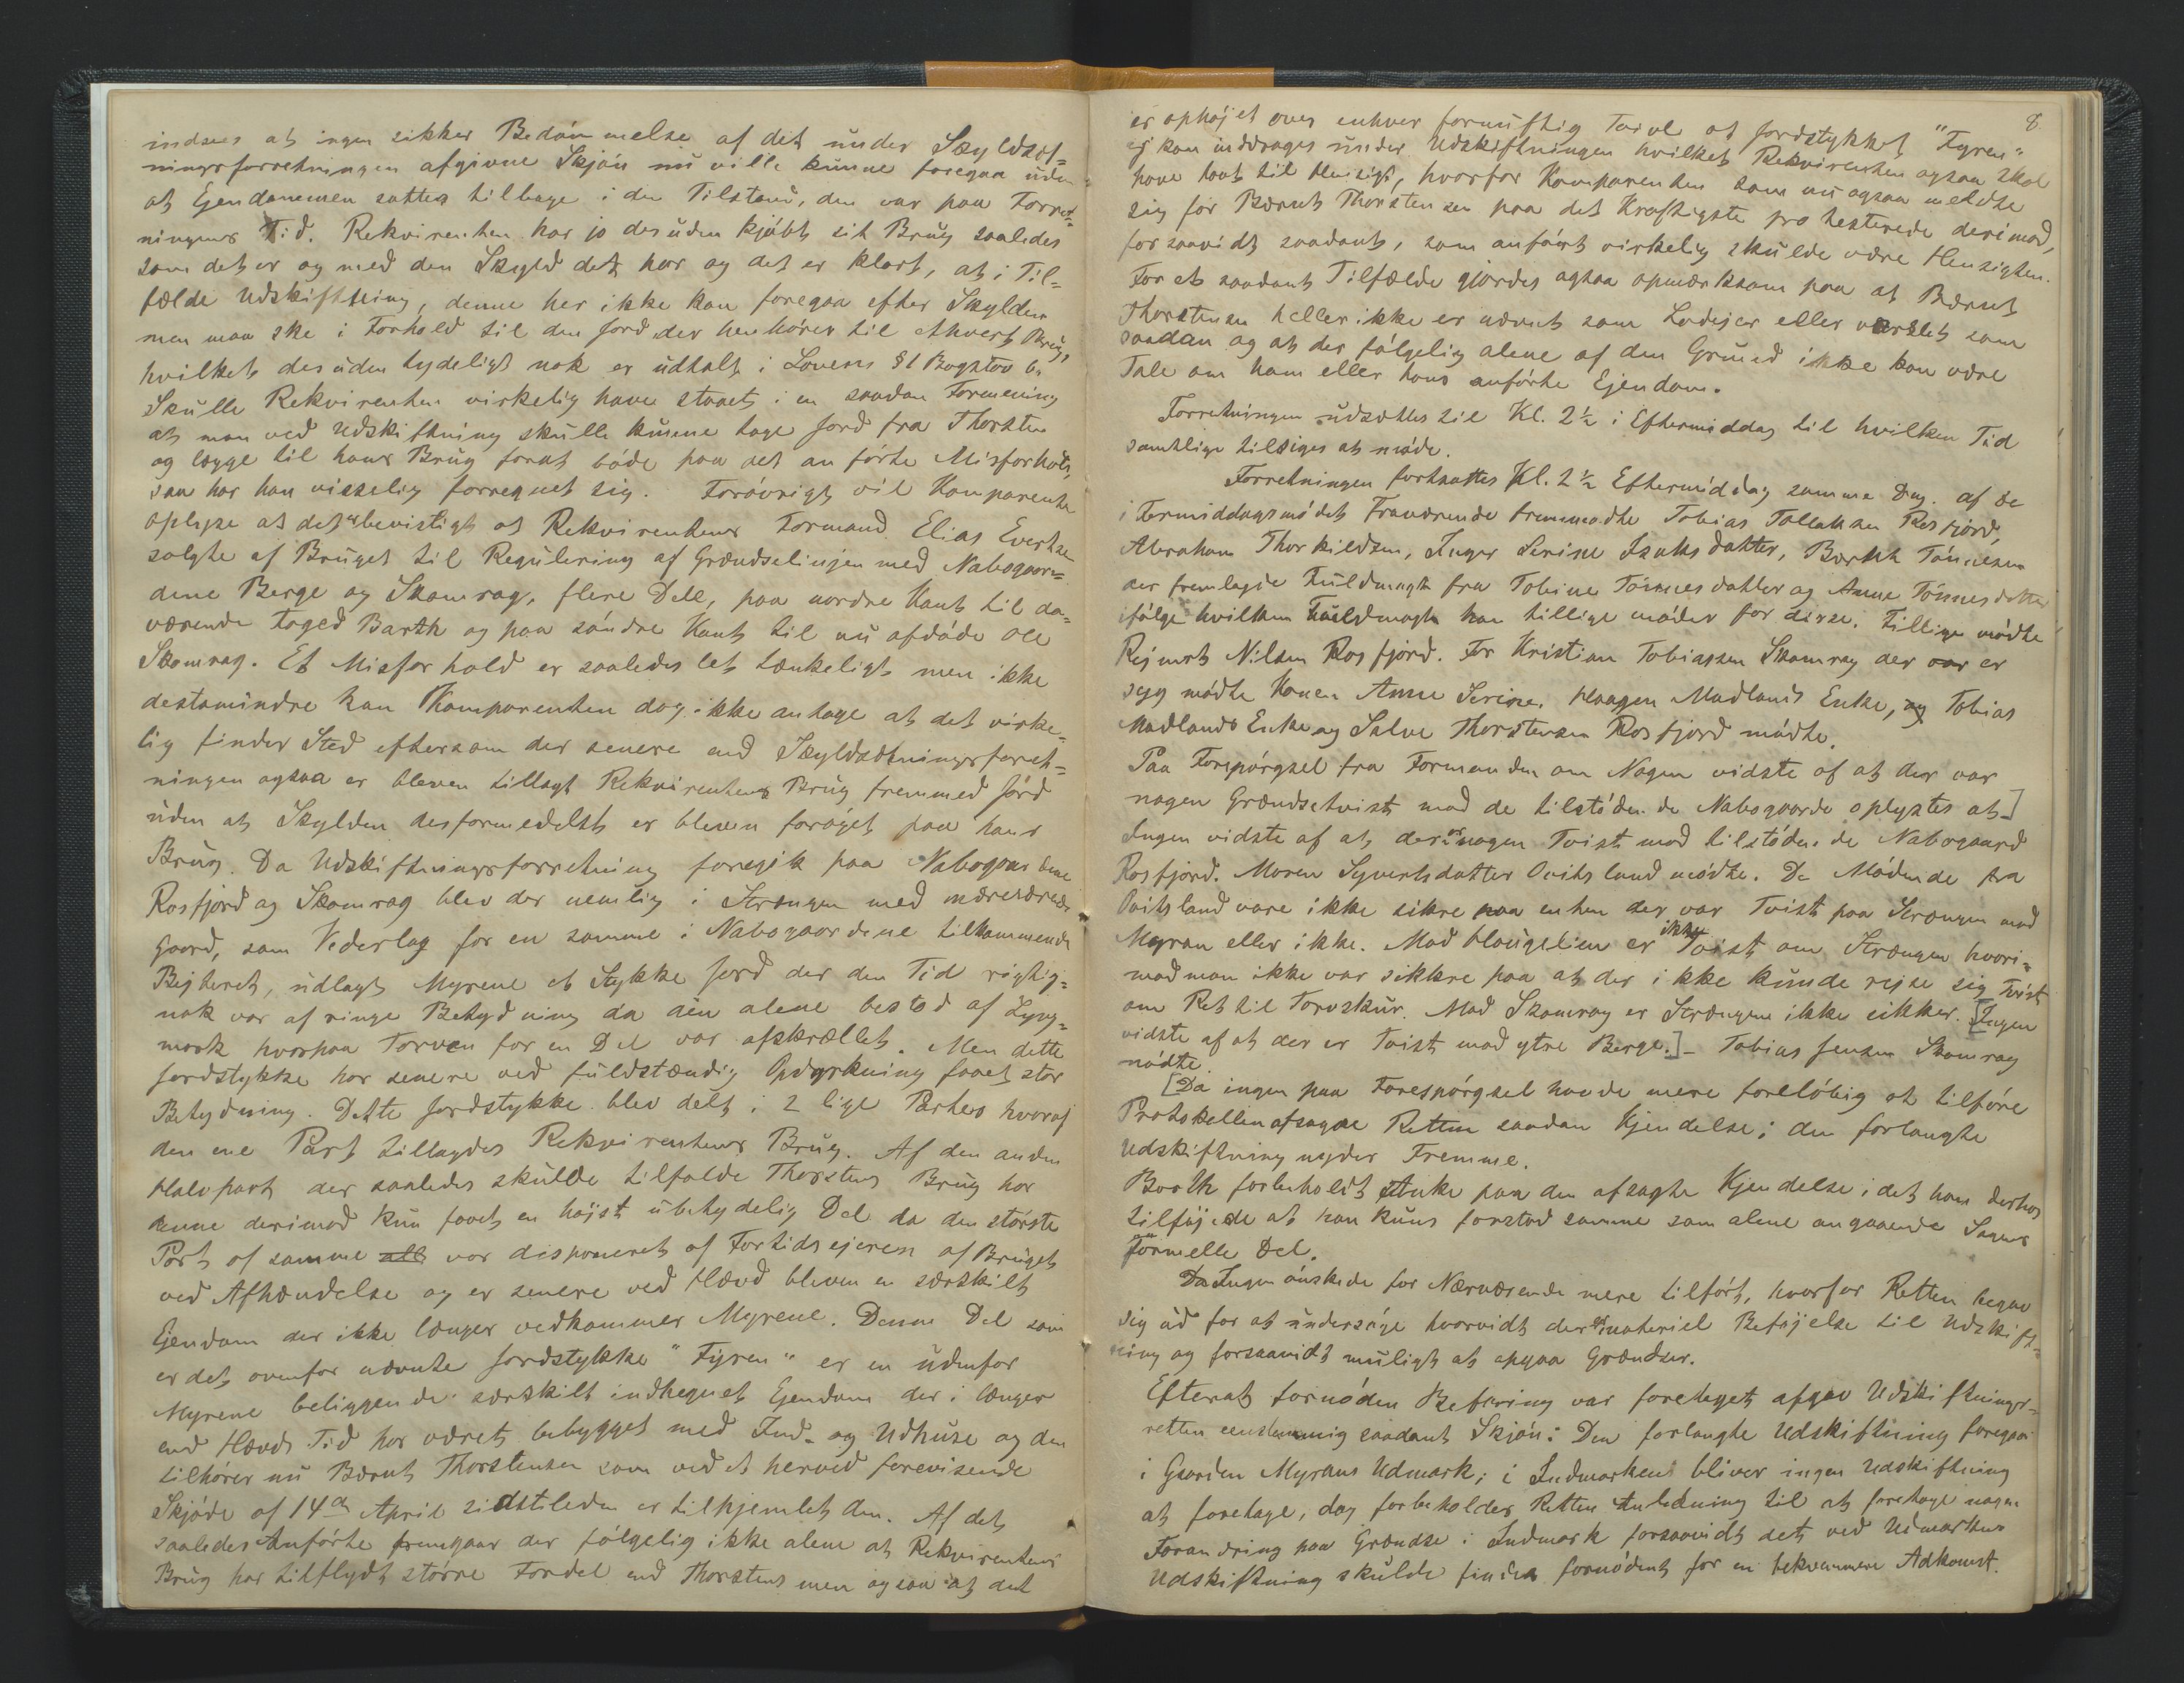 indsees at ingen sikker Bedömmelse af det under Skyldsæt=
ningsforretningen afgivne Skjön nu ville kunne foregaa uden
at Ejendommen sattes tilbage i den Tilstand, den var paa Forret=
ningens Tid. Rekvirenten har jo desuden kjöbt sit Brug saaledes
som det er og med den Skyld det har og det er klart, at i Til=
fælde Udskiftning, denne her ikke kan foregaa efter Skylden
men maa ske i Forhold til den Jord der henhörer til ethvert Brug,
hvilket desuden tydeligt nok er udtalt i Lovens § 1 Bogstav b.
Skulle Rekvirenten virkelig have staaet i en saadan Formening
at man ved Udskiftning skulle kunne tage Jord fra Thorsten
og lægge til hans Brug forat böde paa det anförte Misforhold,
saa har han visselig forregnet sig. Foróvrigt vil Komparenten
oplyse at det er bevisligt at Rekvirentens Formand Elias Evertsen
solgte af Bruget til Regulering af Grændselinjen med Nabogaar=
dene Berge og Skomrag, flere Dele, paa nordre Kant til da=
værende Foged Barth og paa söndre Kant til nu afdöde Ole
Skomrag. Et Misforhold er saaledes let tænkeligt men ikke
destomindre kan Komparenten dog ikke antage at det virke=
lig finder Sted eftersom der senere end Skyldsætningsforret=
ningen ogsaa er bleven tillagt Rekvirentens Brug fremmed Jord
uden at Skylden desformedelst er bleven foröget paa hans
Brug. Da Udskiftningsforretning foregik paa Nabogaardene
Rosfjord og Skomrag blev der nemlig i Strængen med nærværende
Gaard, som Vederlag for en samme i Nabogaardene tilkommende
Bejteret, udlagt Myrene et Stykke Jord der den Tid rigtig=
nok var af ringe Betydning da den alene bestod af Lyng=
mark hvorpaa Torven for en Del var afskrællet. Men dette
Jordstykke har senere ved fuldstændig Opdyrkning faaet stor
Betydning. Dette Jordstykke blev delt i 2 lige Parter hvoraf
den ene Part tillagdes Rekvirentens Brug. Af den anden
Halvpart der saaledes skulde tilfalde Thorstens Brug har
denne derimod kun faaet en höjst ubetydelig Del da den störste
Part af samme var disponeret af Fortidsejeren af Bruget
ved Afhændelse og er senere ved Hævd bleven en særskilt
Ejendom der ikke længer vedkommer Myrene. Denne Del som
er det ovenfor nævnte Jordstykke "Fyren" er en udenfor
Myrene beliggende særskilt indhegnet Ejendom der i længer
end Hævds Tid har været bebygget med Ind- og Udhuse og den
tilhörer nu Bernt Thorstensen som ved et herved forevisende
Skjöde af 14de April sidstleden er tilhjemlet den. Af det
saaledes Anförte fremgaar der fölgelig ikke alene at Rekvirentens
Brug har tilflydt större Fordel end Thorstens men ogsaa at det
8
er ophöjet over enhver fornuftig Tvivl at Jordstykket "Fyren"
ej kan inddrages under Udskiftningen hvilket Rekvirenten ogsaa skal
have havt til Hensigt, hvorfor Komparenten som nu ogsaa meldte
sig for Bernt Thorstensen paa det Kraftigste protesterede derimod,
forsaavidt saadant, som anfört virkelig skulde være Hensigten.
For et saadant Tilfælde gjordes ogsaa opmærksom paa at Bernt
Thorstensen heller ikke er nævnt som Lodejer eller varslet som
saadan og at der fölgelig alene af den Grund ikke kan være
Tale om ham eller hans anförte Ejendom.
Forretningen udsættes til Kl. 2½ i Eftermiddag til hvilken Tid
samtlige tilsiges at möde.
Forretningen fortsattes Kl. 2½ Eftermiddag samme Dag. af de
i Formiddagsmödet Fraværende fremmödte Tobias Tollaksen Rosfjord,
Abraham Thorkildsen, Inger Serine Isaksdatter, Berthe Tönnesen
der fremlagde Fuldmagt fra Tobine Tönnesdatter og Anne Tönnesdatter
ifölge hvilken Fuldmagt han tillige möder for disse. Tillige mödte
Rejnert Nilsen Rosfjord. For Kristian Tobiassen Skomrag der er
syg mödte Konen Anne Serine. Haagen Madlands Enke, og Tobias
Madlands Enke og Salve Thorstensen Rosfjord mödte.
Paa Forspörgsel fra Formanden om Nogen vidste af at der var
nogen Grændsetvist mod de tilstödende Nabogaarde oplystes at]
Ingen vidste af at der er nogen Tvist mod tilstödende Nabogaard
Rosfjord. Maren Syvertsdatter Ovitsland mödte. De Mödende fra
Ovitsland vare ikke sikre paa enten der var Tvist paa Strængen mod
Myran eller ikke. Mod Haugelien er ikke Tvist om Strængen hvori=
mod man ikke var sikkre paa at der ikke kunde rejse sig Tvist
om Ret til Torvskur. Mod Skomrag er Strængene ikke sikker. [Ingen
vidste af at der er Tvist mod ytre Berge.] - Tobias Jensen Skomrag
mödte.
[Da ingen paa Forespörgsel havde mere forelöbig at tilföre
Protokollen afsagde Retten saadan Kjendelse: den forlangte
Udskiftning nyder Fremme.
Booth forbeholdt Anke paa den afsagte Kjendelse, idet han derhos
tilföjede at han kuns forstod samme som alene angaaende Sagens
formelle Del.
Da Ingen önskede for Nærværende mere tilfört, hvorfor Retten begav
sig ud for at undersöge hvorvidt der er materiel Beföjelse til Udskift=
ning og forsaavidt muligt at opgaa Grændser.
Efterat fornöden Befaring var foretaget afgav Udskiftnings=
retten eenstemmig saadant Skjön: Den forlangte Udskiftning foregaar
i Gaarden Myrans Udmark; i Indmarken bliver ingen Udskiftning
at foretage, dog forbeholder Retten Anledning til at foretage nogen
Forandring paa Grændse i Indmark forsaavidt det ved Udmarkens
Udskiftning skulde findes fornödent for en bekvemmere Adkomst.